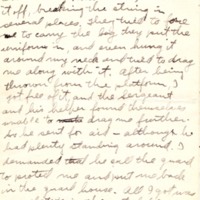 it off, breaking the string in
several places, they tried to force
me to carry the bag they put the
uniform in, and even hung it
around my neck and tried to drag
me along with it. After being
thrown from the platform, I
got hold of it and the sergeant
and his helper found themselves
unable to drag me further.
So he sent for aid – although he
had plenty standing around. I
demanded that he call the guard
to protect me and put me back
in the guard house. All I got was